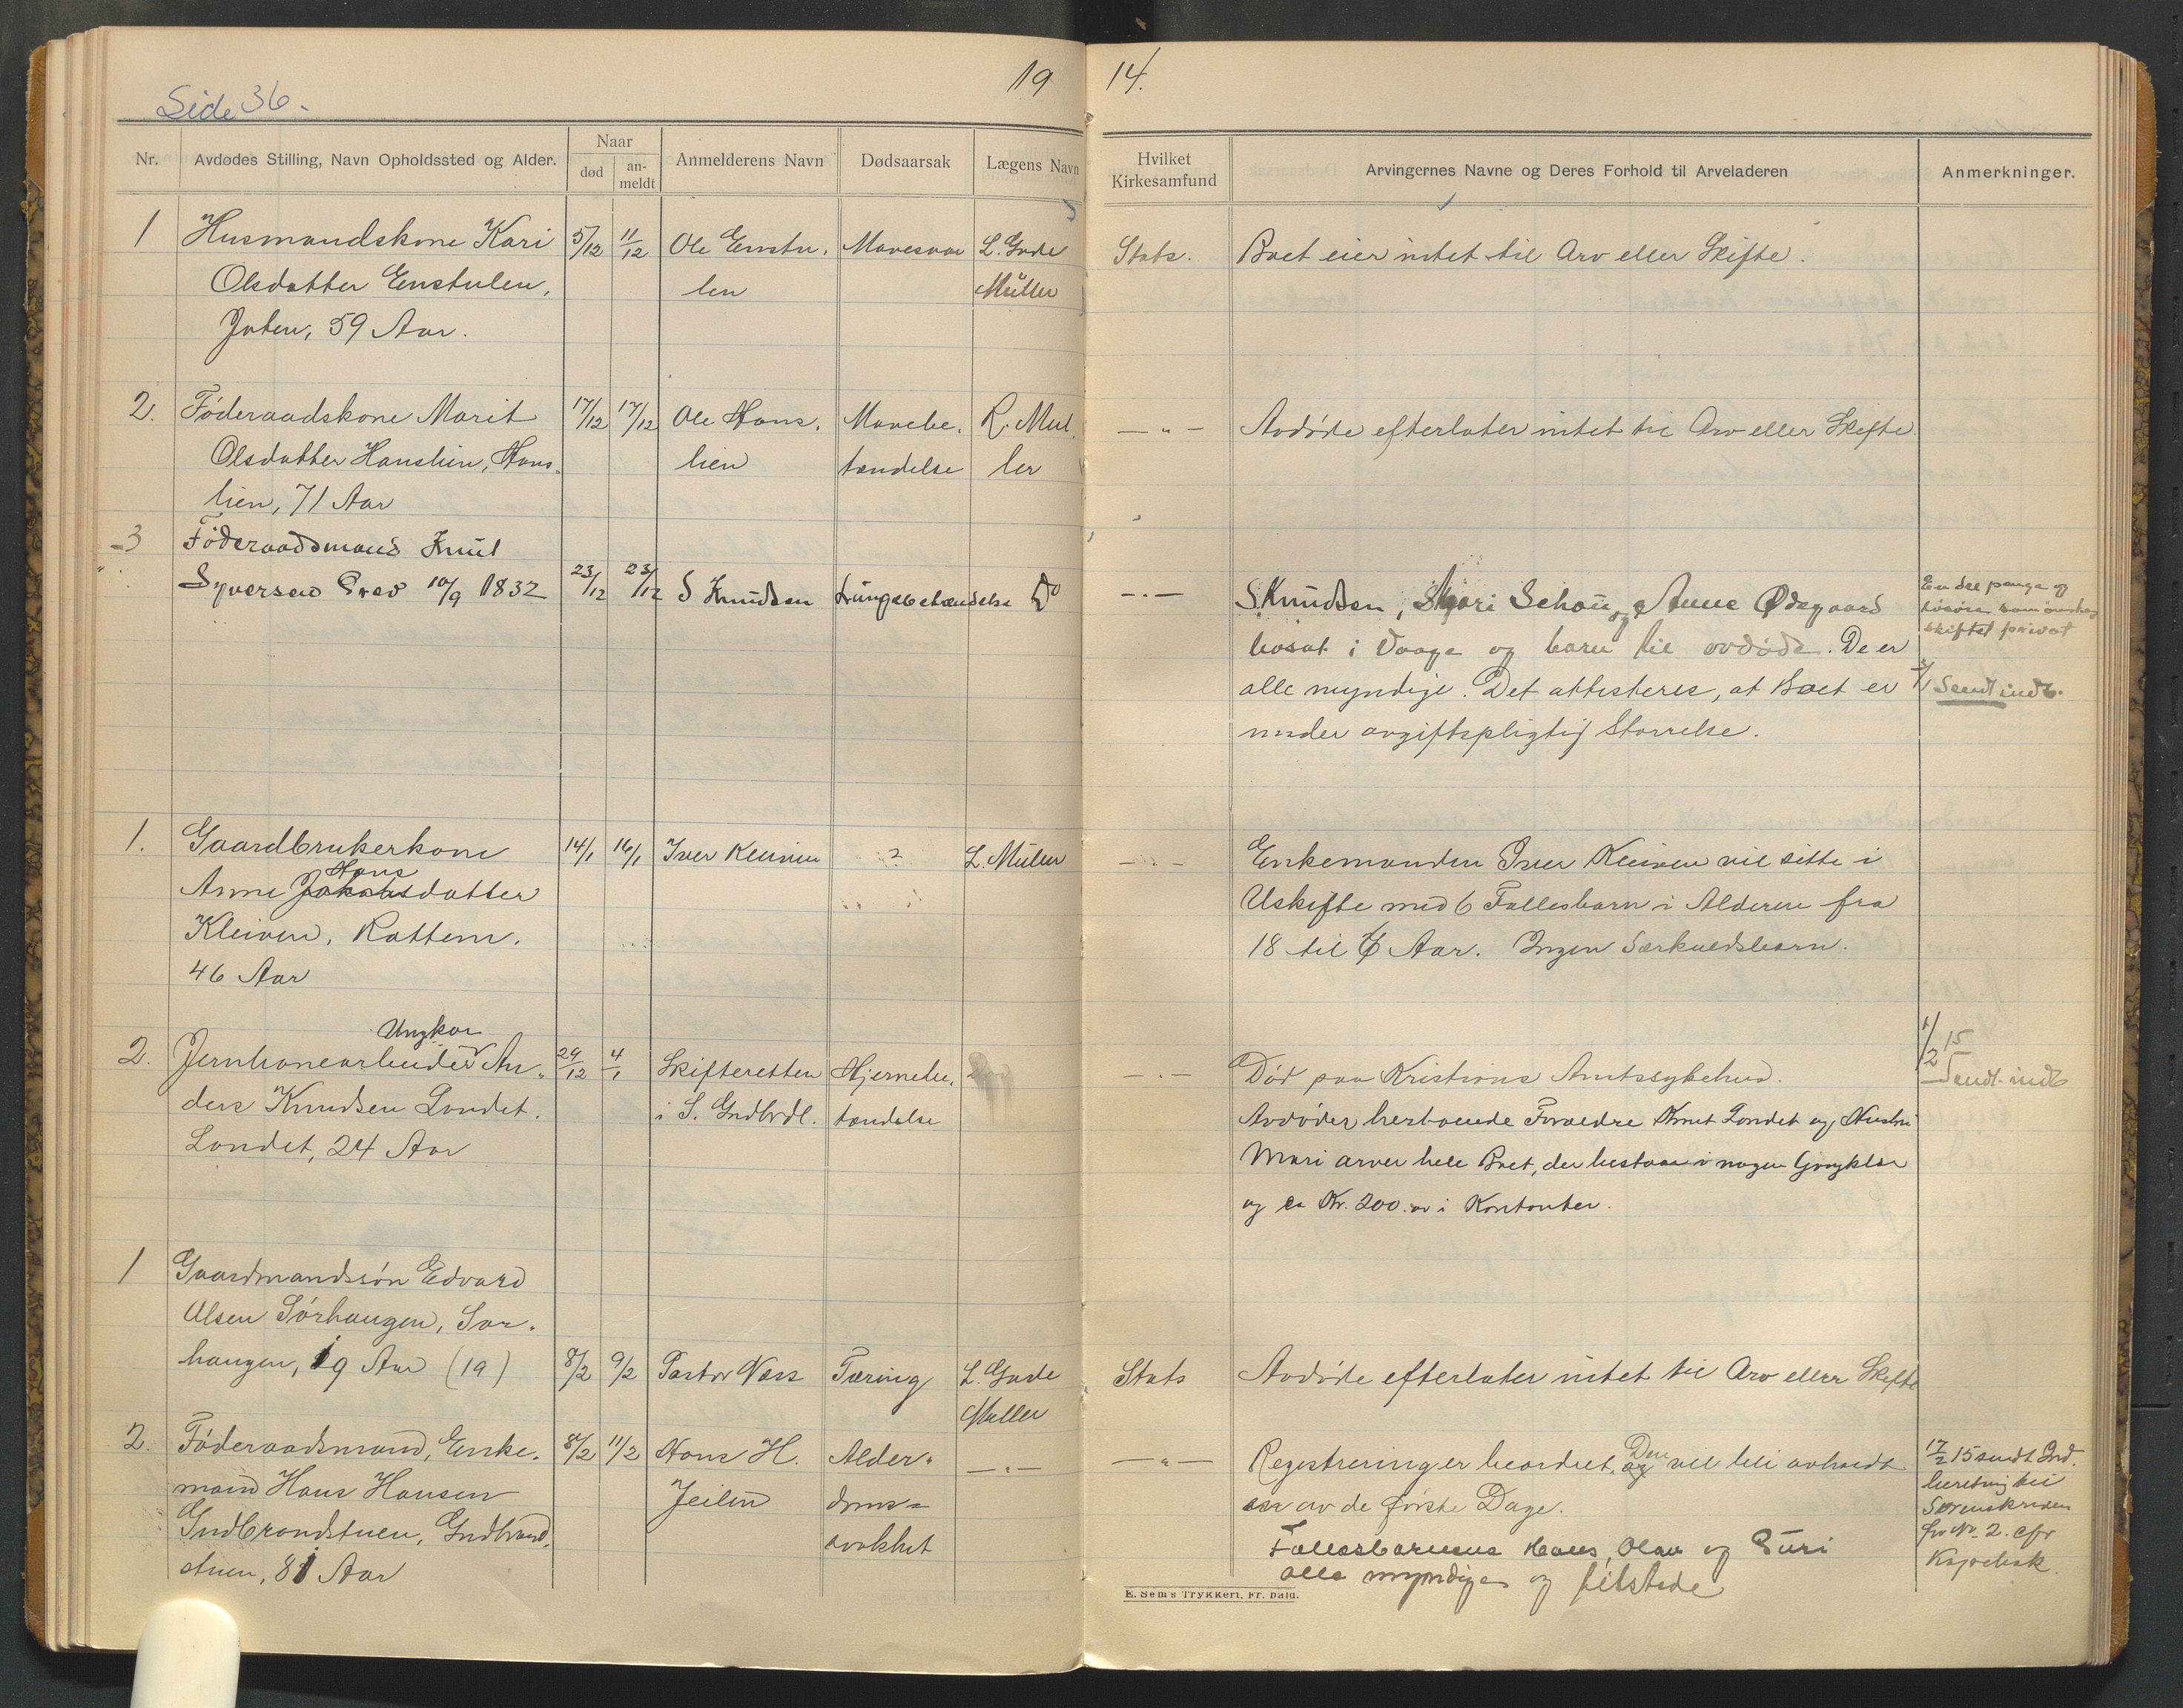 Side 36.
19 14.
Nr.
Avdødes Stilling, Navn Opholdssted og Alder.
Naar
død
an-
meldt
Anmelderens Navn
Dødsaarsak
Lægens Navn
Hvilket
Kirkesamfund
Arvingernes Navne og Deres Forhold til Arveladeren
Anmerkninger.
1 Husmandskone Kari 5/12 11/12 Ole Enstu- Mavesaar L. Gude Stats. Boet eier intet til Arv eller Skifte.
Olsdatter Enstulen, len Müller
59 Aar.
2. Föderaadskone Marit 17/12 17/12 Ole Hans- Mavebe- R. Mül- — " — Avdøde efterlater intet til Arv eller Skifte.
Olsdatter Hanslien, Hans- lien tændelse ler
lien, 71 Aar
3 Föderaadsmand Knut
Syversen 10/9 1832 23/12 23/12 S Knudsen Lungebetændelse Do — . — S. Knudsen, Mari Schou, og Anne Ødegaard
En del penge og
løsøre som ønskes
skiftet privat
bosat i Vaage og barn til avdøde. De er
alle myndige. Det attesteres, at Boet er 3/1 Sendt indb.
under avgiftspligtig Størrelse.
1. Gaardbrukerkone 14/1 16/1 Iver Kleiven ? L. Müller — . — Enkemanden Iver Kleiven vil sitte i
Hans
Anne Jakobsdatter Uskifte med 6 Fællesbarn i Alderen fra
Kleiven, Rottem. 18 til 6 Aar. Ingen Særkuldsbarn.
46 Aar
Ungkar
2. Jernbanearbeider An- 29/12 4/1 Skifteretten Hjernebe- — . — Død paa Kristians Amtssykehus.
1/2 15
Sendt indb
ders Knudsen Londet. i S. Gudbrdl. tændelse Avdødes herboende Forældre Knut Londet og Hustru
Londet, 24 Aar Mari arver hele Boet, der bestaar i nogen Gangklær
og ca Kr. 200.00 i Kontanter.
1 Gaardmandssön Edvard
Olsen Sörhaugen, Sör-
haugen, 19 Aar (19) 8/2 9/2 Pastor Næss Tæring L. Gude Stats Avdöde efterlater intet til Arv eller Skifte
Müller
2. Föderaadsmand, Enke- 8/2 11/2 Hans H. Alder- — " — — " — Registrering er beordret, og Den vil bli avholdt
mand Hans Hansen Jeilen doms- en av de første Dage.
Gudbrandstuen, Gudbrand- svakhet Fællesbarnene Hans, Olav og Suri
stuen, 81 Aar alle myndige og tilstede
17/2 15 sendt Ind-
beretning til
Sorenskriveren
for No. 2. cfr
Kopibok.
E. Sem's Trykkeri, Fr. hald.